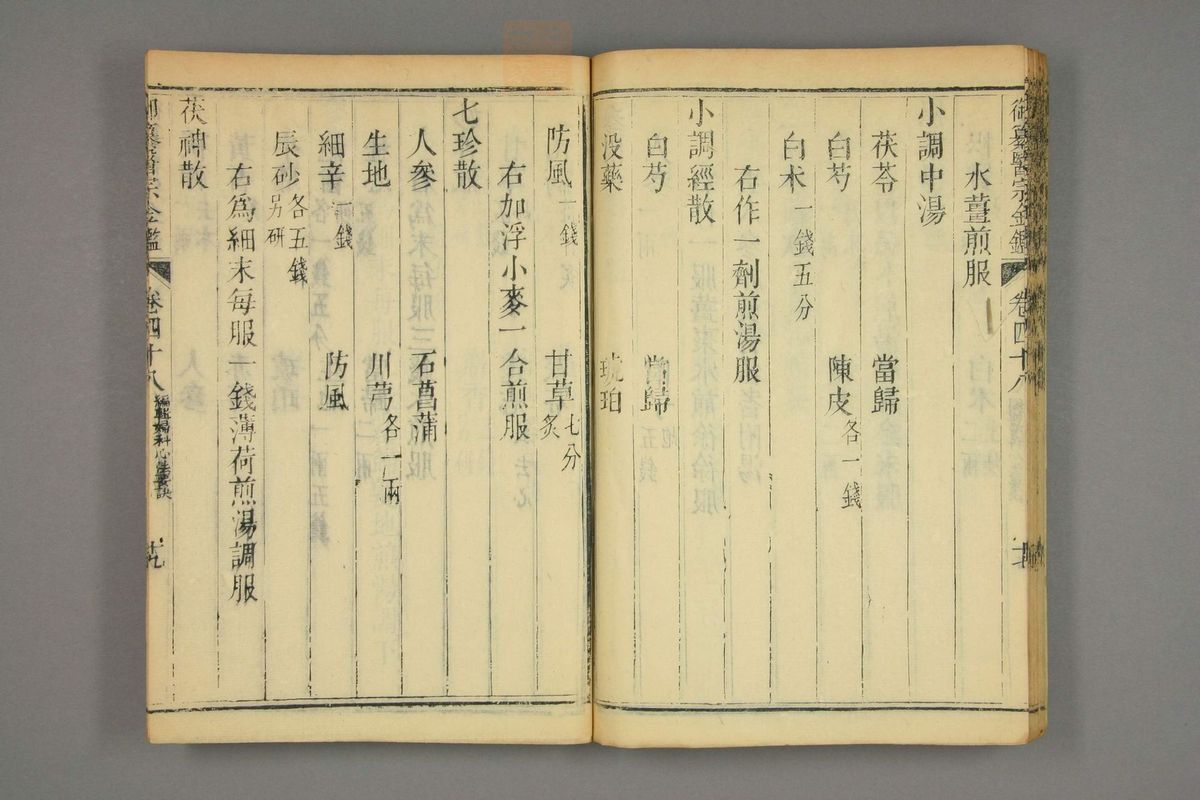 御纂醫宗金鑑 卷四十八
水薑煎服
小調中湯
茯苓 當歸
白芍 陳皮各一錢
白朮一錢五分
右作一劑煎湯服
小調經散
白芍 當歸
没藥 琥珀
防風一錢 甘草炙七分
右加浮小麥一合煎服
七珍散
人參 石菖蒲
生地 川芎各一兩
細辛一錢 防風
辰砂另研各五錢
右爲細末每服一錢薄荷煎湯調服
茯神散
御纂醫宗金鑑 卷四十八 編輯婦科心法要訣 十九